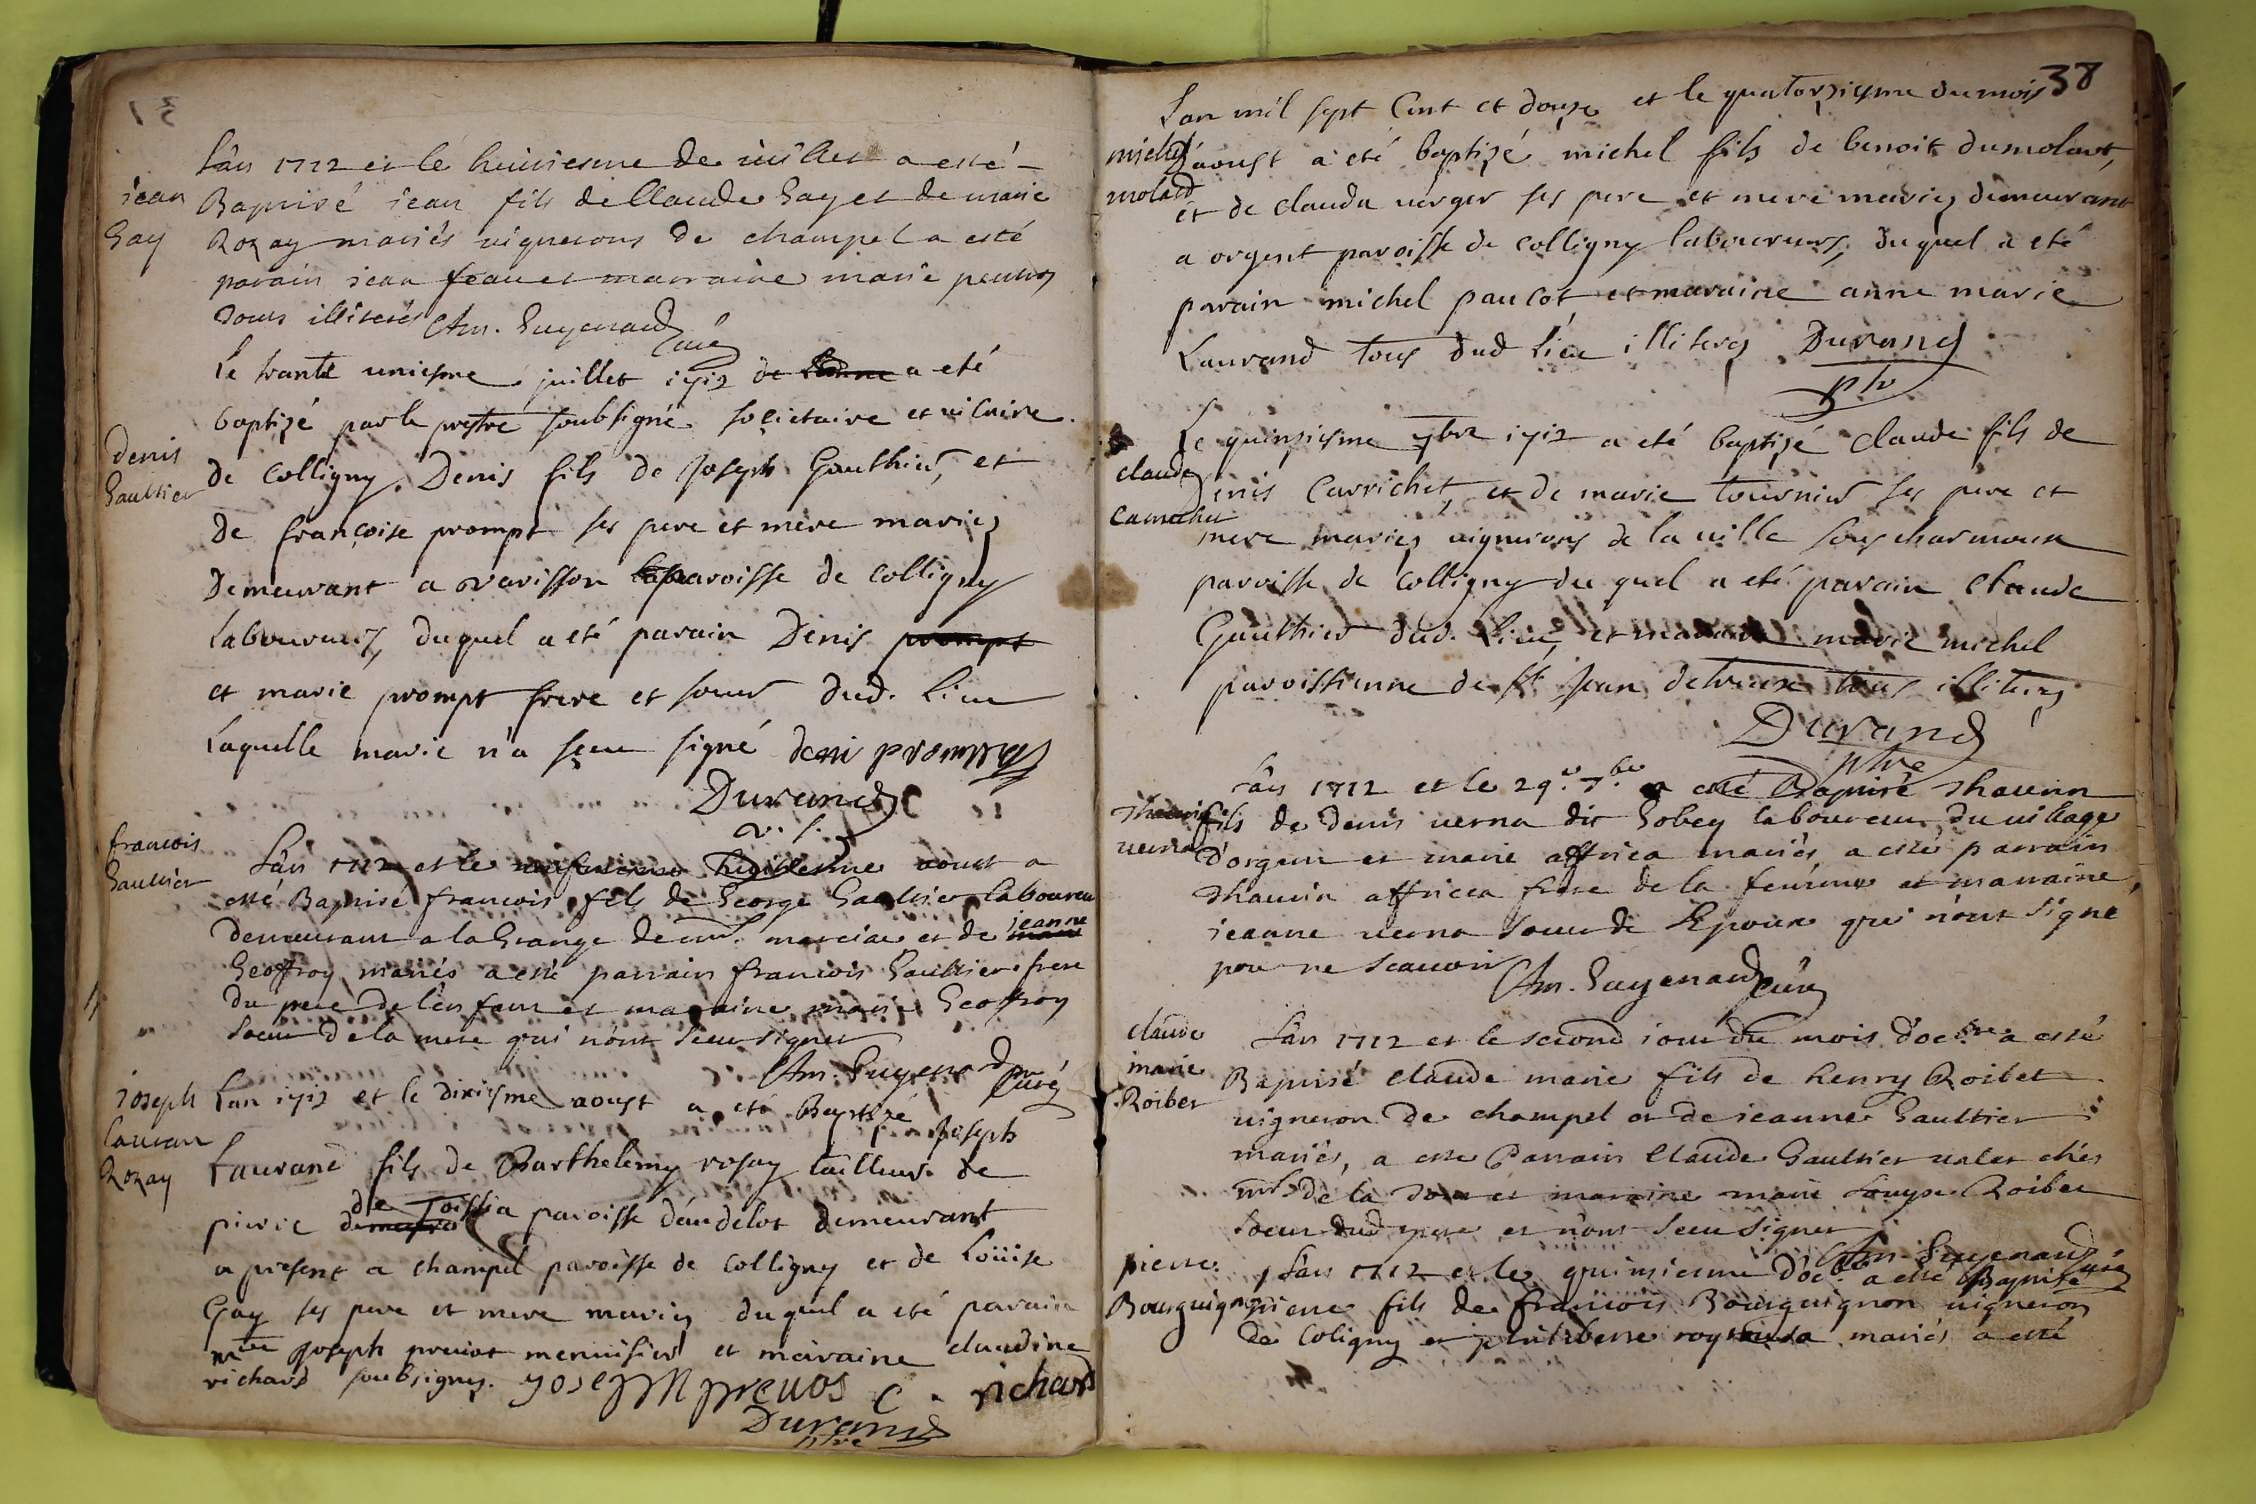 jean
Gay
Lân 1712 et le huitiesme de iuillet a esté
Baptisé iean fils de Claude Gay et de marie
Rozay mariés uignerons de champel a esté
parain iean feau et marraine marie
tous illiterés Am. Guyenard
Curé
Le trante uniesme juillet 1712 a eté
denis
Gaultier
baptizé par le prestre soubsigné sociétaire et vicaire
de Colligny. Denis fils de Joseph Gauthier, et
de françoise prompt ses pere et mere mariez
Demeurant a parroisse de Colligny
Laboureurs, duquel a eté parain Denis prompt
et marie prompt frere et soeur dud. Lieu
Laquelle marie n'a sceu signé deni prompt
Durand
v. s.
francois
Gaultier
Lân 1712 et le aoust a
esté Baptisé francois fils de George Gaultier laboureur
demeurant a la Grange de mr. marciat et de jeanne
Geoffroy mariés a esté parrain francois Gaultier frere
du pere de lênfant et maraine marie Geoffroy
soeur de la mere qui n'ont sceu signer
Am. Guyenard
Curé
ioseph
lauran
Rozay
Lan 1712 et le dixiesme aoust a eté Baptizé Joseph
Laurand fils de Barthelemy rosay tailleur de
pierre de Toissia paroisse d'andelot demeurant
a present a champel paroisse de Colligny et de Loüise
Gay ses pere et mere mariez duquel a eté parain
mtre Joseph prevot menuisier et maraine claudine
richard soubsignez. yoseph prevos C. richard
Durand
ptre
38
Lan mil sept Cent et douze et le quatorziesme du mois
michel
molard
d'aoust a eté baptizé michel fils de benoit dumolard,
et de claudu verger ses pere et mere mariez demeurant
a orgent paroisse de colligny laboureurs, duquel a eté
parain michel paucot et maraine anne marie
Laurand tous dud Lieu illiterez Durand
ptr
Le quinziesme 7bre 1712 a eté baptizé claude fils de
claude
Carrichet
Denis Carrichet, et de marie tournier ses pere et
mere mariez vignerons de la ville sous charmoux
paroisse de Colligny du quel a eté parain Claude
Gauthier dud. Lieu, et maraine marie michel
paroissienne de st Jean detreux tous illiterez
Durand
ptre
Lân 1712 et le 29.e 7.bre a esté Baptisé Thauvin
Thauvin
uerna
fils de denis uerna dit Gobey laboureur du uillage
d'orgent et marie affrica mariés a esté parrain
Thauvin affricca frere de la femme et marraine
ieanne uerna soeur de lEpoux qui n'ont signé
pour ne scauoir Am. Guyenard Curé
claude
marie
Roibet
Lân 1712 et le second iour du mois d'octbre a esté
Baptisé claude marie fils de henry Roibet
uigneron de champel et de ieanne Gaultier
mariés, a este Parrain Claude Gaultier ualet chés
mr de la et marraine marie Louyse Roibet
soeur dud pere et n'ont sceu signer
Am. Guyenard Curé
pierre
Bourguignon
Lân 1712 et le quinsieme d'octbre a esté Baptisé
pierre fils de francois Bourguignon uigneron
de Coligny et philiberte mariés a esté